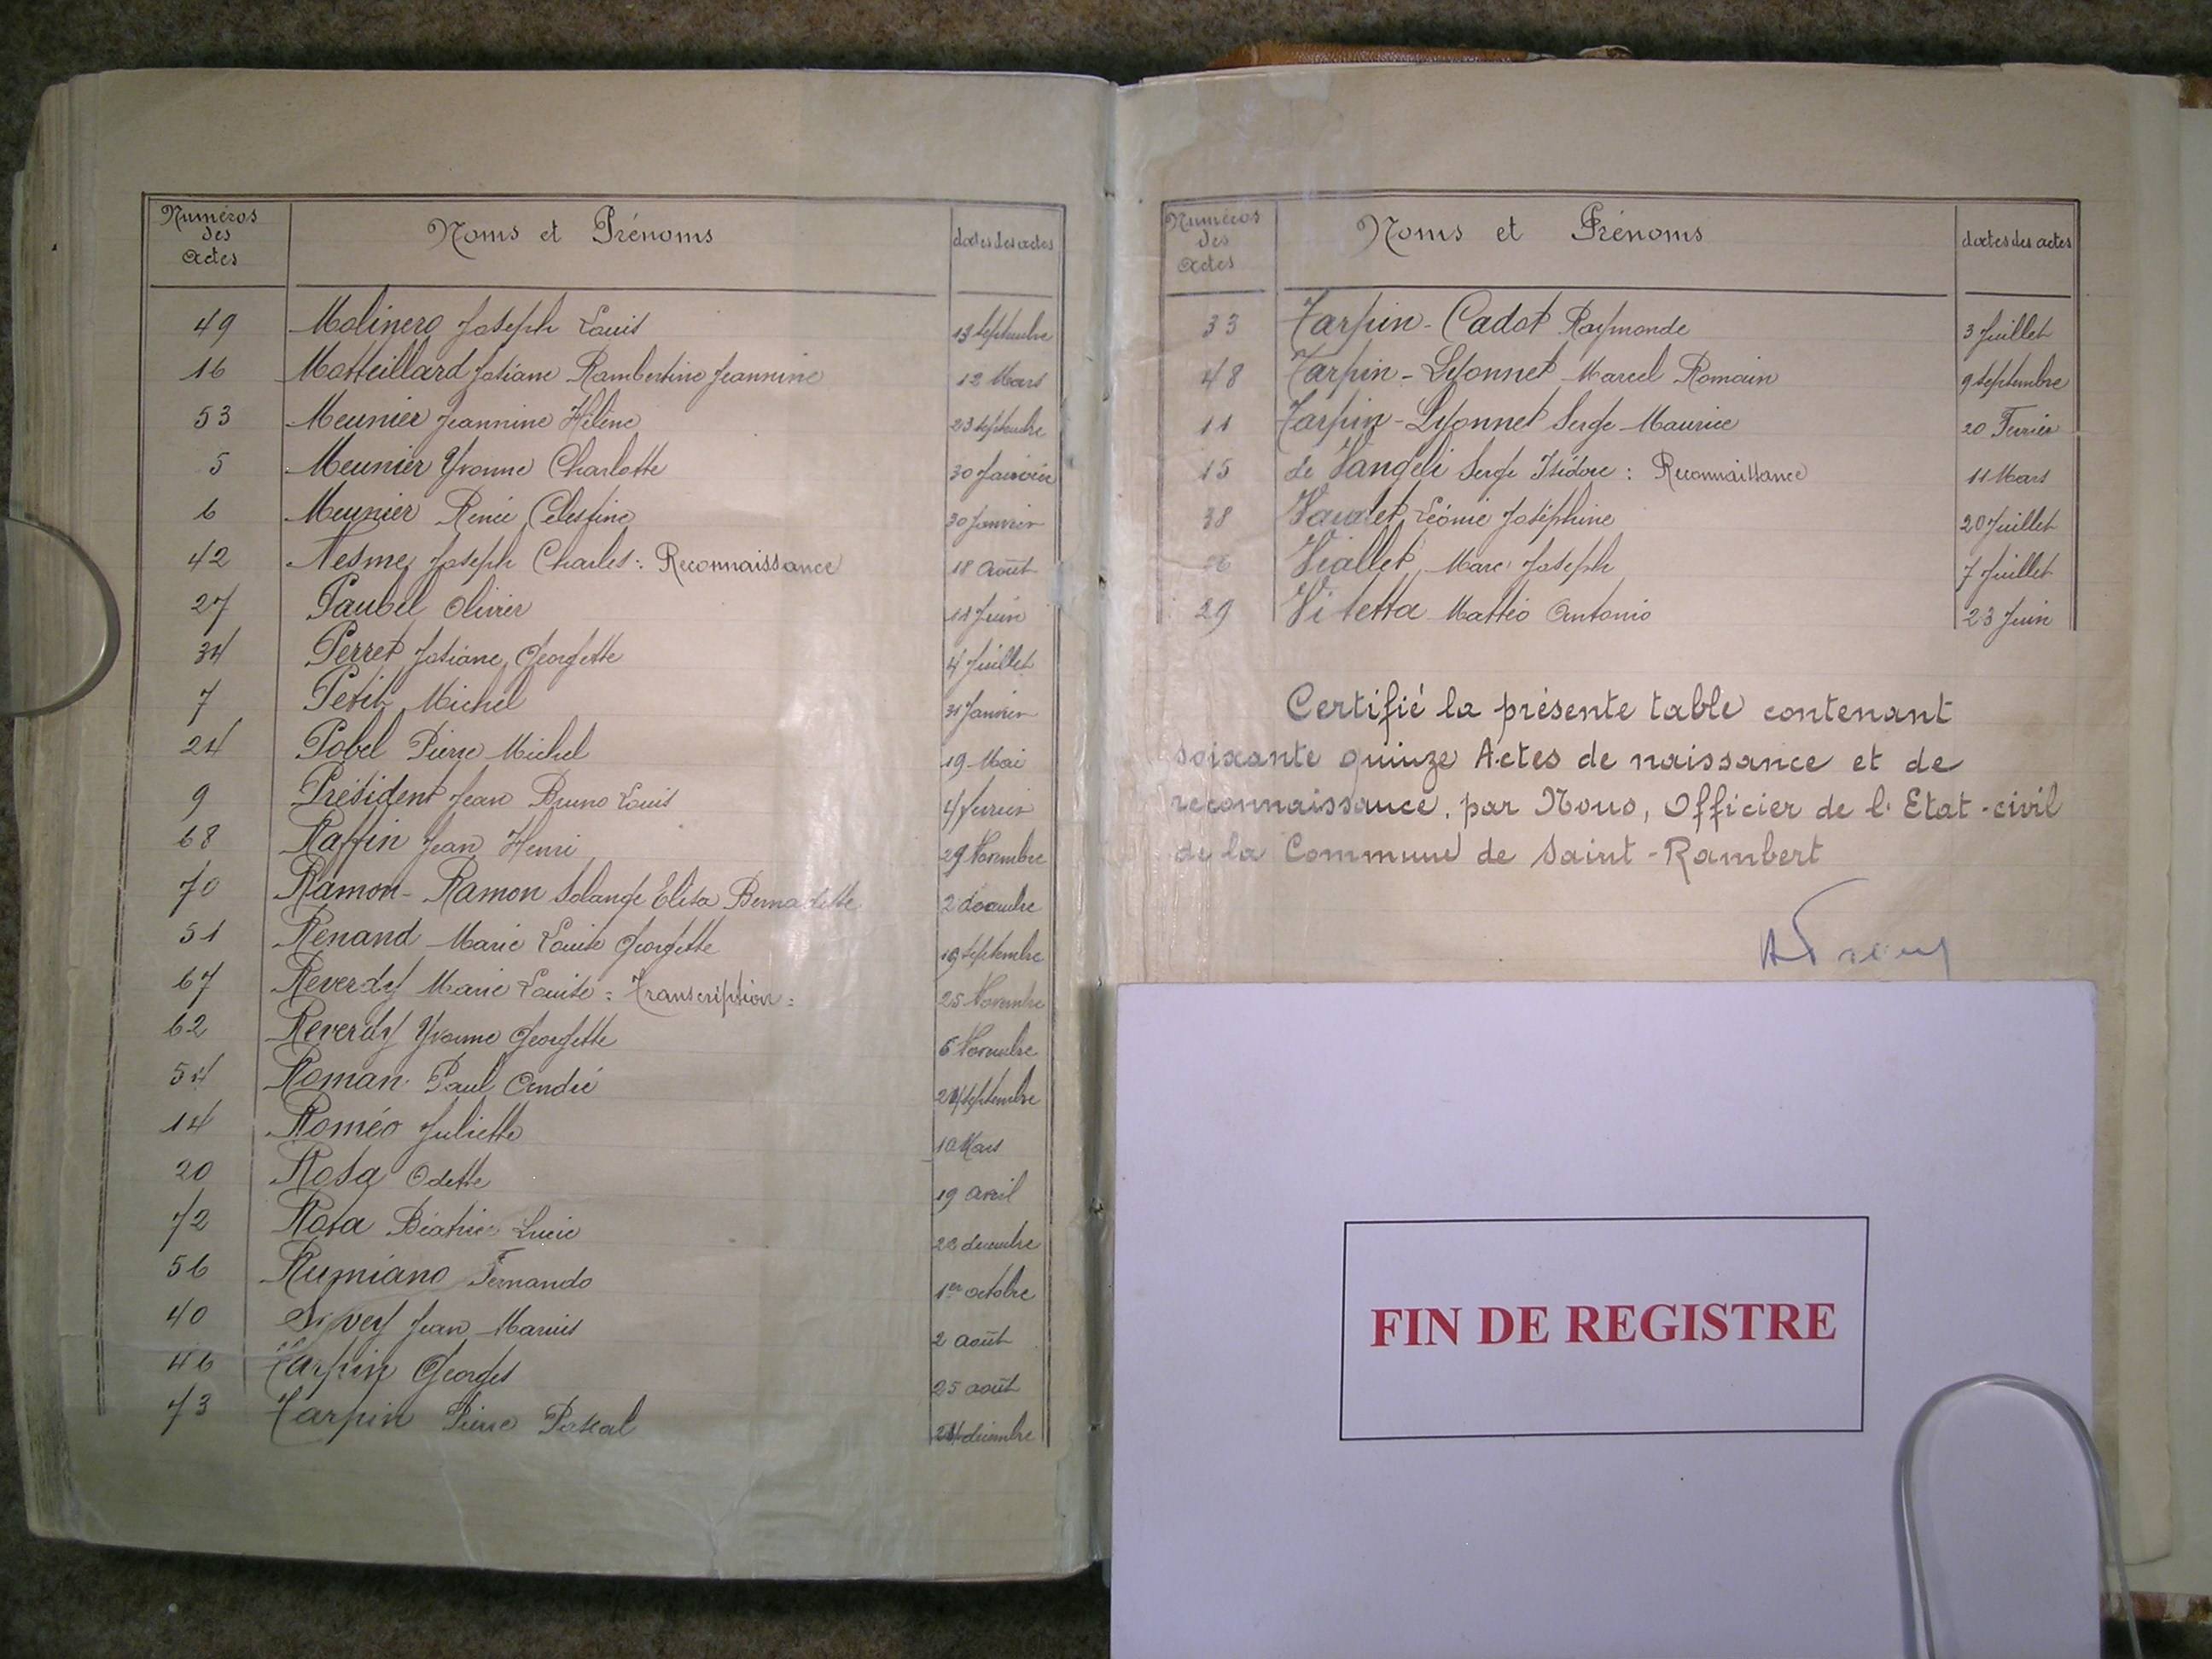 Numéros
des
Actes
Noms et Prénoms
dates des actes
49 Molinero Joseph Louis 13 Septembre
16 Motteillard Josiane Rambertine Jeannine 12 Mars
53 Meunier Jeannine Hélène 23 septembre
5 Meunier Yvonne Charlotte 30 Janvier
6 Meunier Renée Célestine 30 Janvier
42 Nesme Joseph Charles : Reconnaissance 18 Août
27 Paubel Olivier 11 Juin
34 Perret Josiane Georgette 4 Juillet
7 Petit Michel 31 Janvier
24 Pobel Pierre Michel 19 Mai
9 Président Jean Bruno Louis 4 fevrier
68 Raffin Jean Henri 29 Novembre
70 Ramon-Ramon Solange Elisa Bernadette 2 decembre
51 Renand Marie Louise Georgette 19 septembre
67 Reverdy Marie Louise = Transcription = 25 Novembre
62 Reverdy Yvonne Georgette 6 Novembre
54 Roman Paul André septembre
14 Roméo Juliette 10 Mars
20 Rosa Odette 19 avril
72 Rosa Béatrice Lucie decembre
56 Rumiano Fernando 1er octobre
40 Sivey Jean Marius 2 août
46 Tarpin Georges 25 août
73 Tarpin Pierre Pascal decembre
Numéros
des
Actes
Noms et Prénoms
dates des actes
33 Tarpin-Cadot Raymonde 3 Juillet
48 Tarpin-Lyonnet Marcel Romain 9 septembre
11 Tarpin-Lyonnet Serge Maurice 20 Fevrier
15 de Vangeli Serge Isidore : Reconnaissance 11 Mars
38 Léonie Joséphine 20 Juillet
Viallet Marc Joseph 7 Juillet
29 Vitetta Mattéo Antonio 23 Juin
Certifié la présente table contenant
soixante quinze Actes de naissance et de
reconnaissance, par Nous, Officier de l'Etat-civil
de la Commune de Saint-Rambert
FIN DE REGISTRE